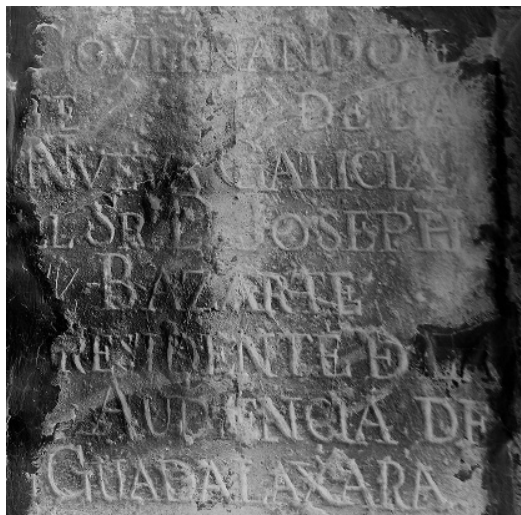 GOVERNANDO
DE LA
NUEVA GALICIA
EL SR. D. JOSEPH
BAZARTE
PRESIDENTE D LA
AUDIENCIA DE
GUADALAXARA.